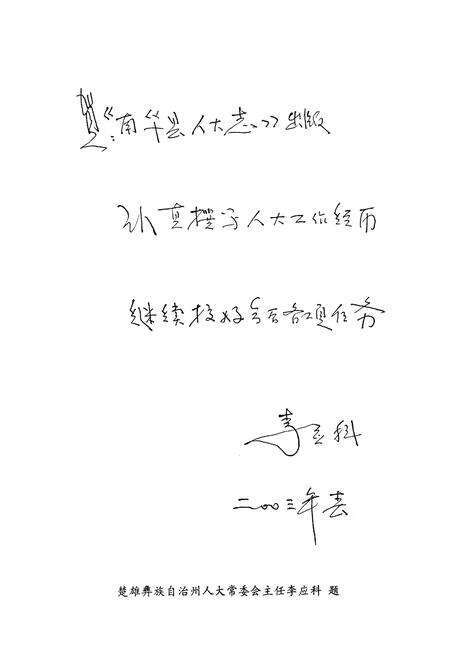 贺：《南华县人大志》出版
认真撰写人大工作经历
继续投好今后各项任务
李应科
二〇〇三年春
楚雄彝族自治州人大常委会主任李应科 题